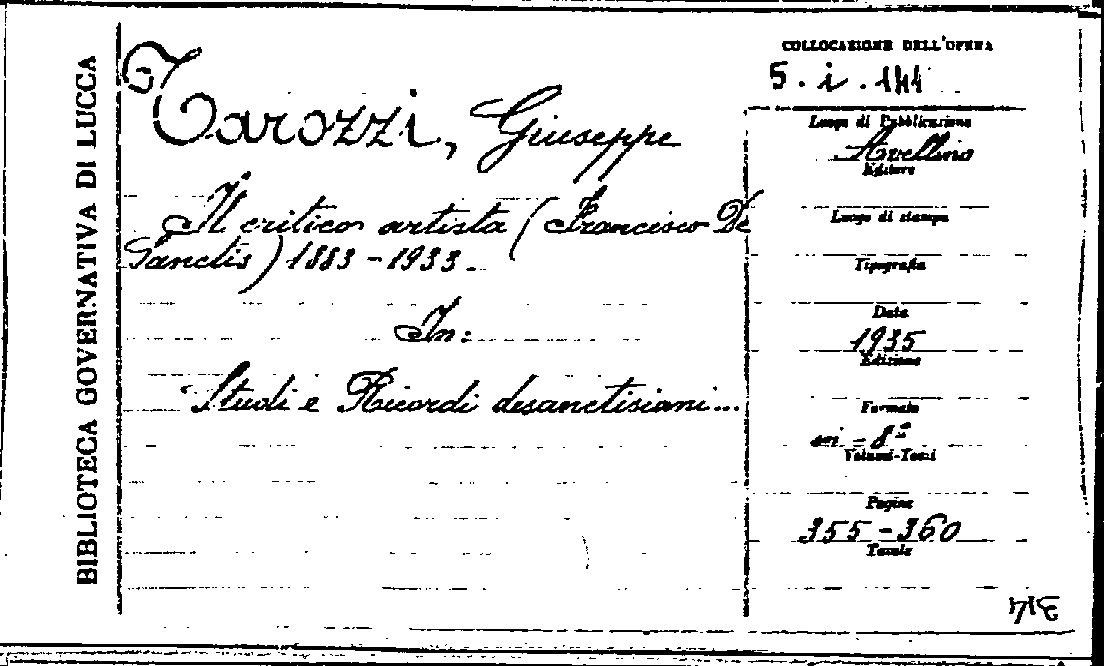 BIBLIOTECA GOVERNATIVA DI LUCCA
Tarozzi, Giuseppe
Il critico artista (Francesco De
Sanctis) 1883-1933.
In:
Studi e Ricordi desanctisiani...
COLLOCAZIONE DELL'OPERA
5. i. 141
Luogo di Pubblicazione
Avellino
Editore
Luogo di stampa
Tipografia
Data
1935
Edizione
Formato
in-8º
Volumi-Tomi
Pagine
355-360
Tavole